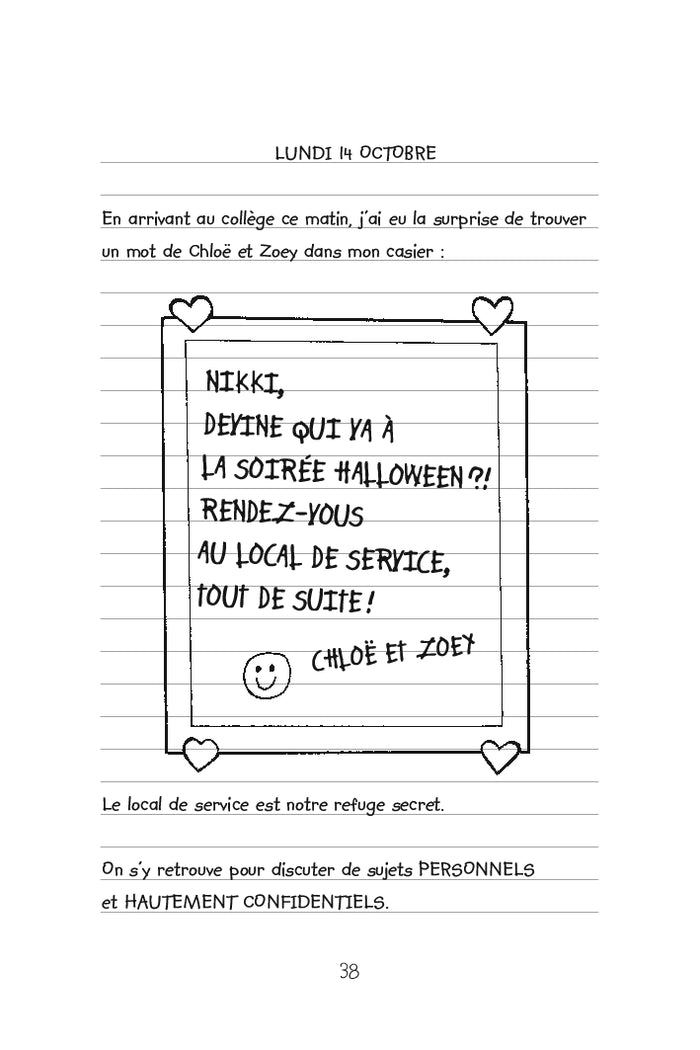 LUNDI 14 OCTOBRE
En arrivant au collège ce matin, j'ai eu la surprise de trouver
un mot de Chloë et Zoey dans mon casier :
NIKKI,
DEVINE QUI VA À
LA SOIRÉE HALLOWEEN ?!
RENDEZ-VOUS
AU LOCAL DE SERVICE,
TOUT DE SUITE !
CHLOË ET ZOEY
Le local de service est notre refuge secret.
On s'y retrouve pour discuter de sujets PERSONNELS
et HAUTEMENT CONFIDENTIELS.
38